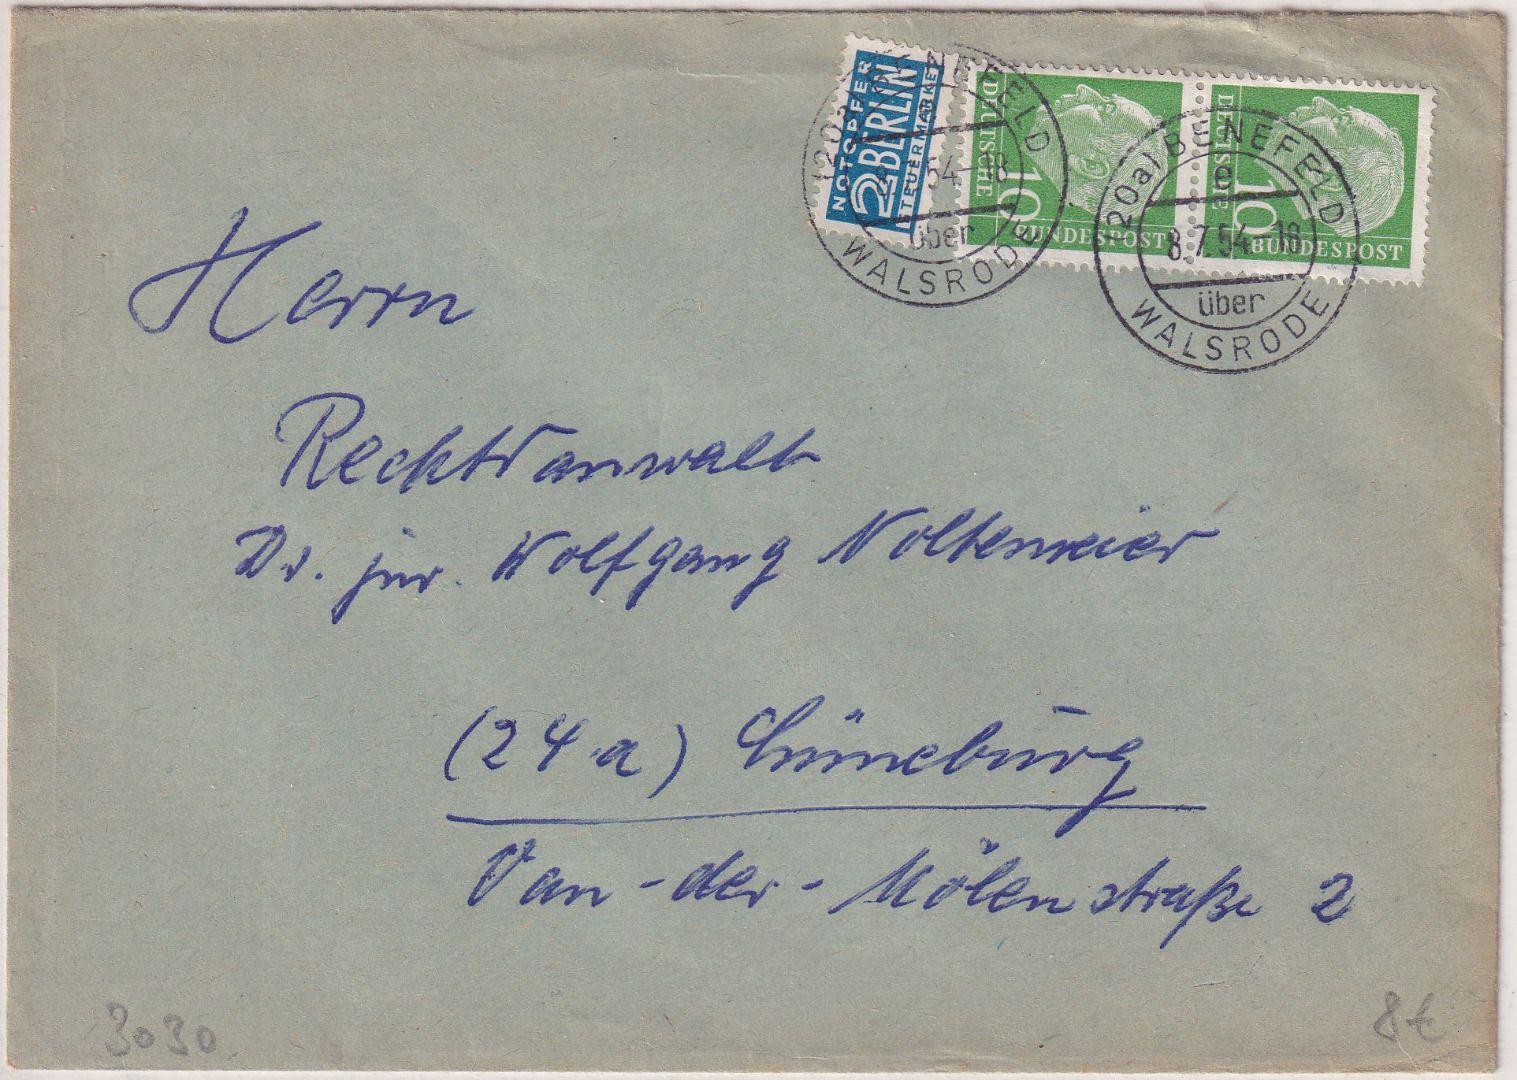 NOTOPFER
2 BERLIN
STEUERMARKE
DEUTSCHE
10
BUNDESPOST
DEUTSCHE
10
BUNDESPOST
(20a) BENEFELD
54-18
über
WALSRODE
(20a) BENEFELD
e
8.7.54-18
über
WALSRODE
Herrn
Rechtsanwalt
Dr. jur. Wolfgang Noltemeier
(24a) Lüneburg
Van-der-Mölenstraße 2
3030
8€